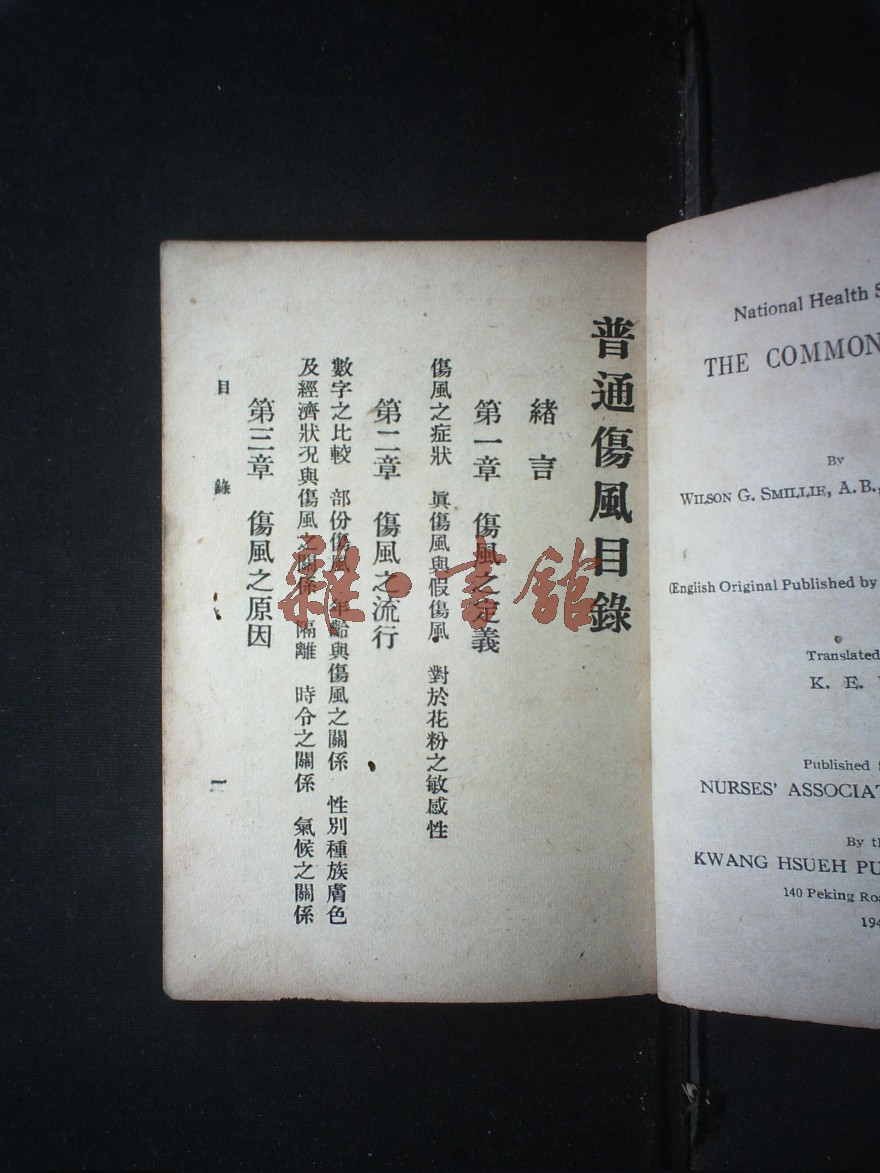 普通傷風目錄
緒言
第一章 傷風之定義
傷風之症狀 眞傷風與假傷風 對於花粉之敏感性
第二章 傷風之流行
數字之比較 部份傷風 年齡與傷風之關係 性別種族膚色
及經濟狀況與傷風之關係 隔離 時令之關係 氣候之關係
第三章 傷風之原因
目錄 一
雜·書館
National Health
THE COMMON
By
WILSON G. SMILLIE, A.B.,
(English Original Published by
Translated
K. E.
Published
NURSES' ASSOCIAT
By th
KWANG HSUEH PU
140 Peking Roa
194